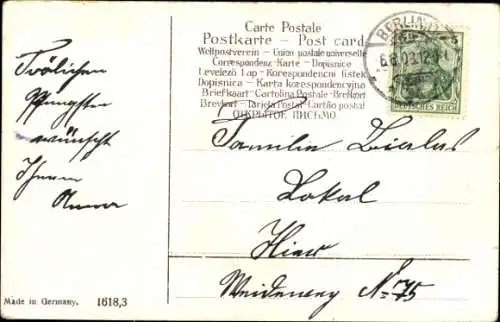 Carte Postale
Postkarte - Post card
Weltpostverein - Union postale universelle
Correspondenz-Karte - Dopisnice
Levelező Lap - Korespondenční lístek
Dopisnica - Karta korespondencyjna
Briefkaart - Cartolina Postale - Brefkort
Brevkort - Tarjeta Postal - Cartão postal
ОТКРЫТОЕ ПИСЬМО.
BERLIN
DEUTSCHES REICH
Fröhlichen
Pfingsten
wünscht
Ihnen
Familie
Lokal
Hier
No 75
Made in Germany. 1618,3